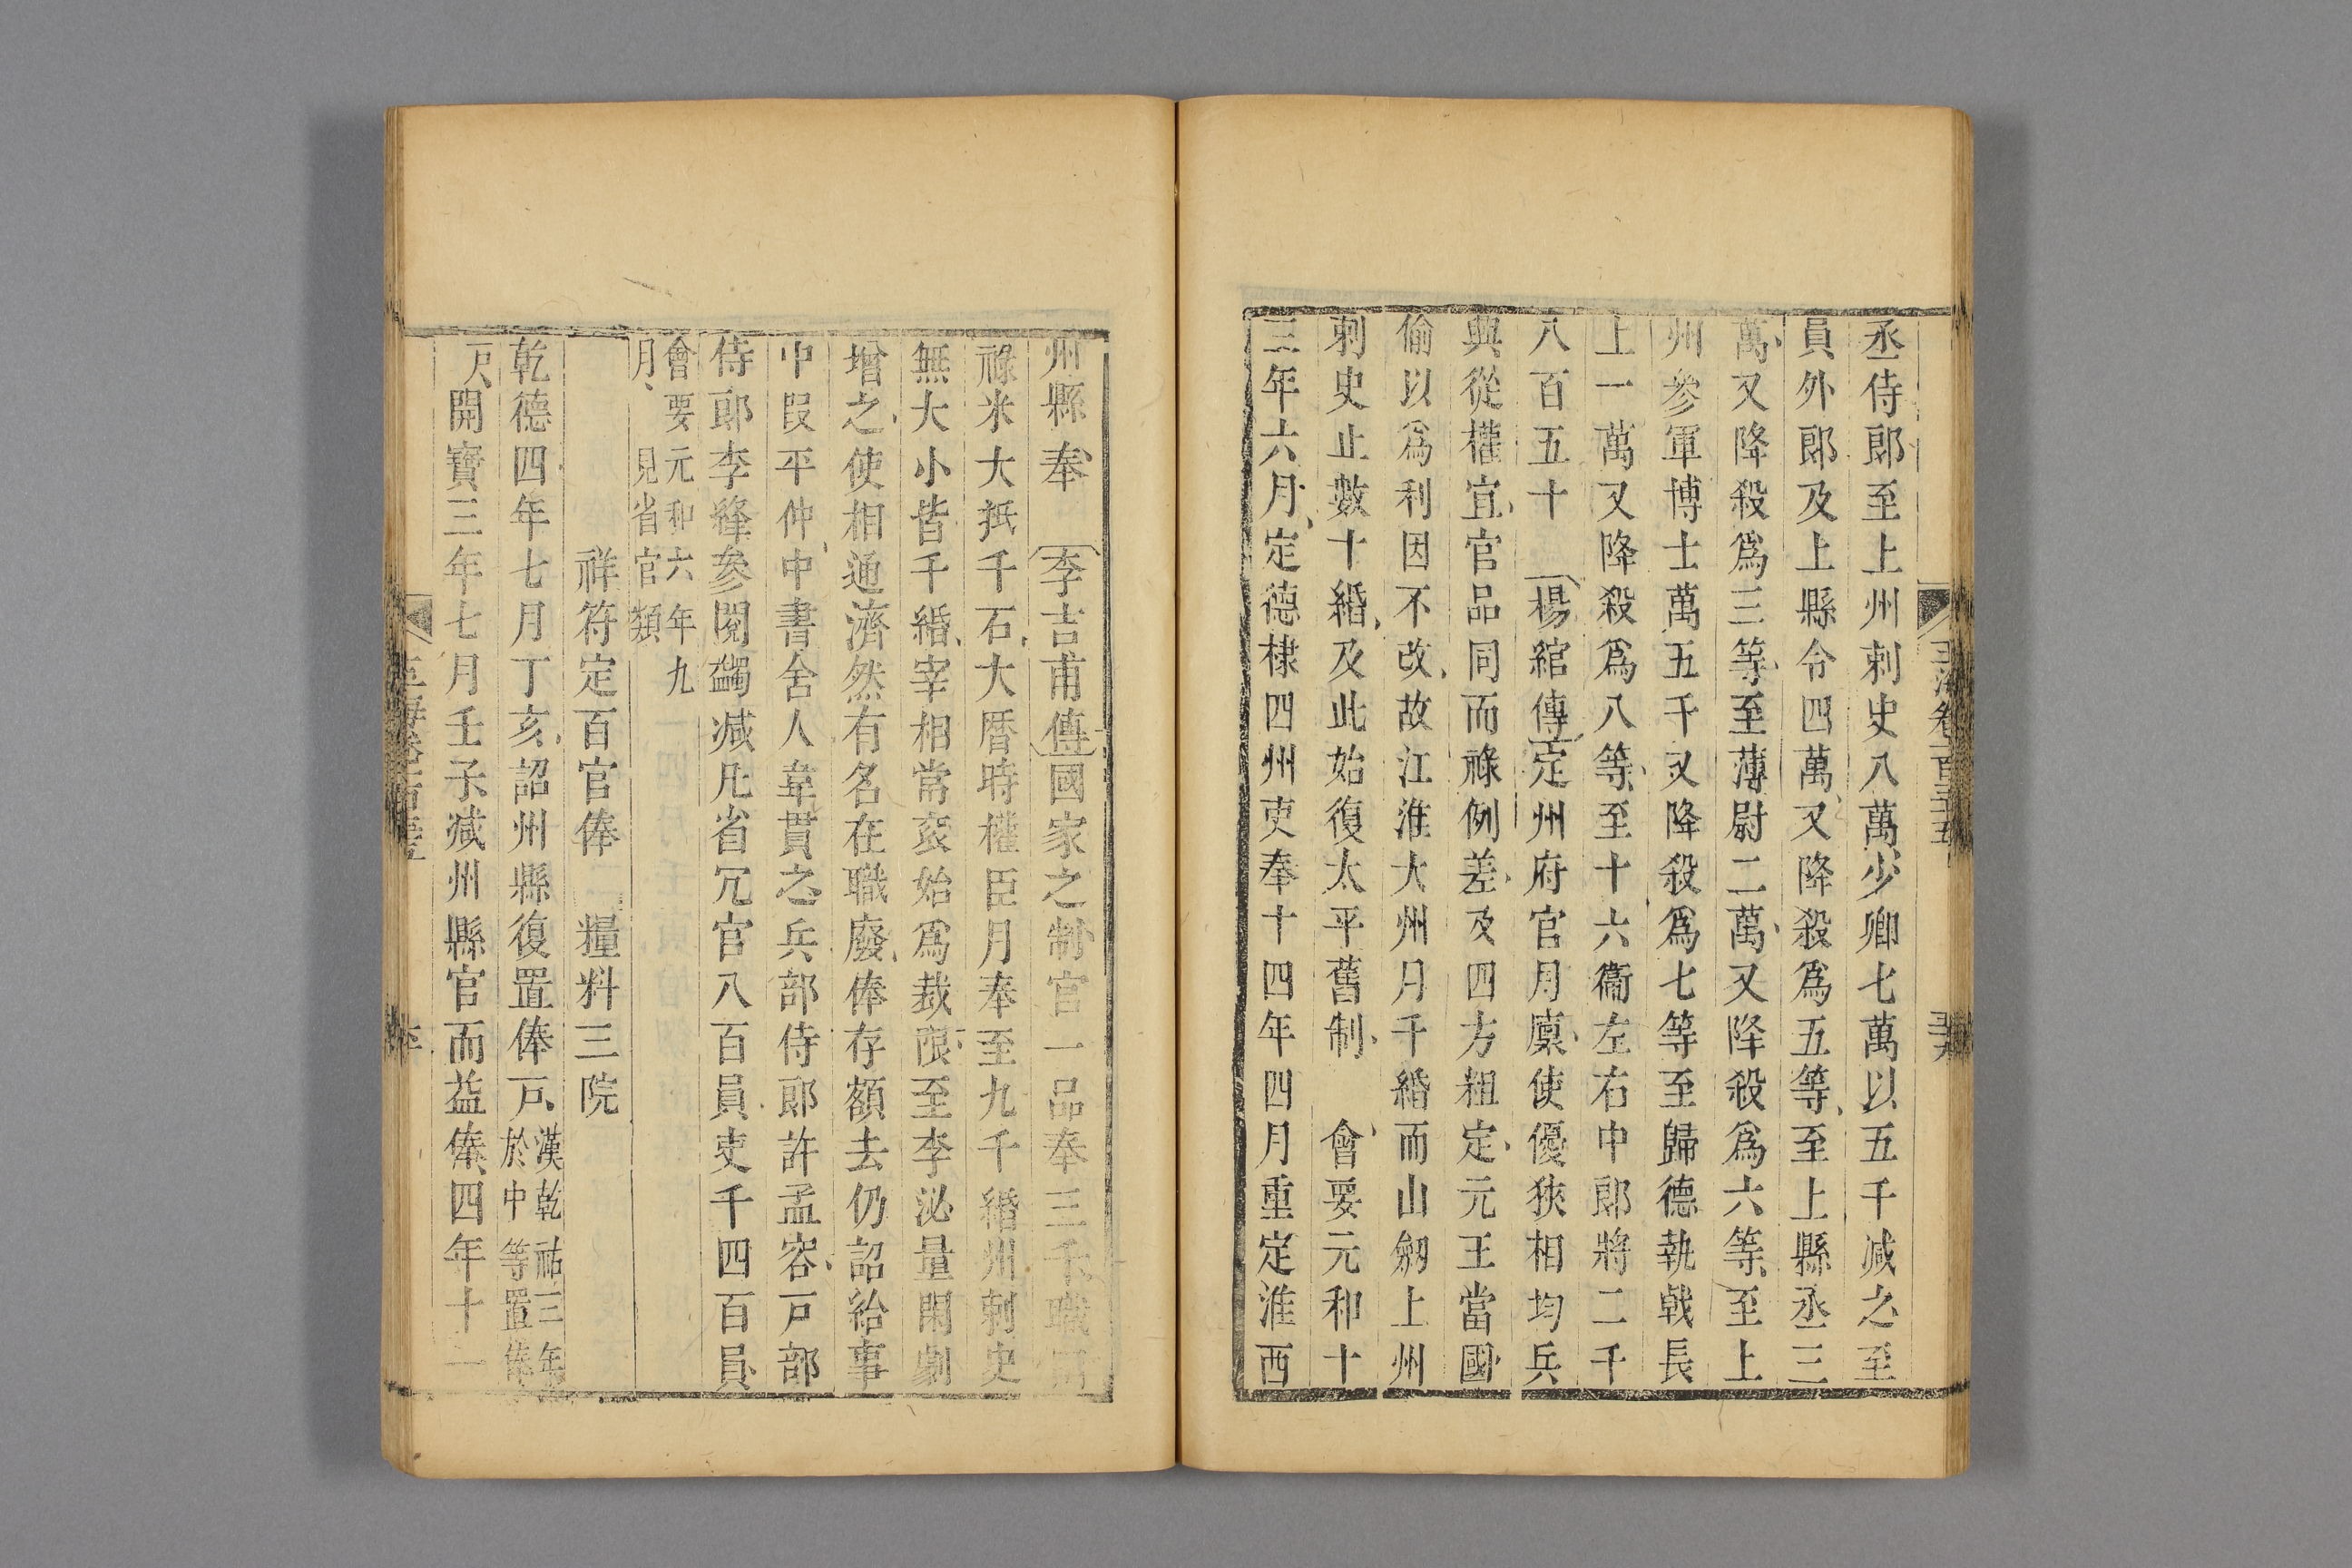 丞侍郎至上州刺史八萬少卿七萬以五千减之至
員外郎及上縣令四萬又降殺爲五等至上縣丞三
萬又降殺爲三等至薄尉二萬又降殺爲六等至上
州參軍博士萬五千又降殺爲七等至歸德執戟長
上一萬又降殺爲八等至十六衞左右中郎將二千
八百五十 楊綰傳定州府官月廪使優狹相均兵
興從權宜官品同而祿例差及四方粗定元王當國
偷以爲利因不改故江淮大州月千緡而山劒上州
刺史止數十緡及此始復太平舊制 會要元和十
三年六月定德棣四州吏奉十四年四月重定淮西
州縣奉 李吉甫傳國家之制官一品奉三千職田
祿米大抵千石大曆時權臣月奉至九千緡州刺史
無大小皆千緡宰相常衮始爲裁限至李泌量閑劇
增之使相通濟然有名在職廢俸存額去仍詔給事
中叚平仲中書舍人韋貫之兵部侍郎許孟容戸部
侍郎李絳參閱蠲减凡省冗官八百員吏千四百員
會要元和六年九
月見省官類
祥符定百官俸 糧料三院
乾德四年七月丁亥詔州縣復置俸戸漢乾祐三年
於中等置俸
戸開寶三年七月壬子减州縣官而益俸四年十